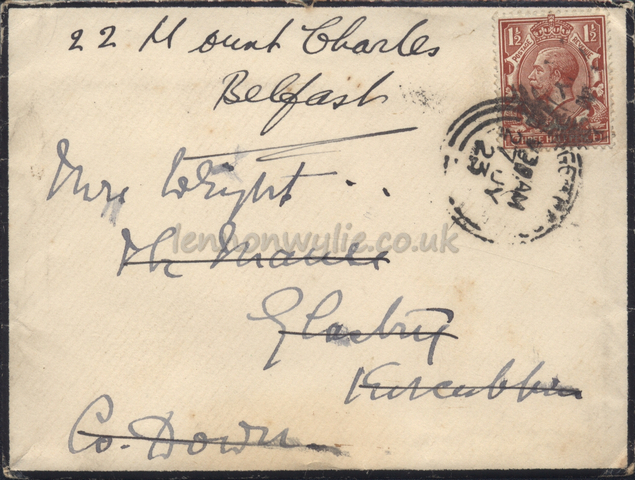 22 Mount Charles
Belfast
Mrs Wright
The Manse
Glastry
Kircubbin
Co. Down
1½ 1½
POSTAGE REVENUE
30 AM
JY
23
lennonwylie.co.uk